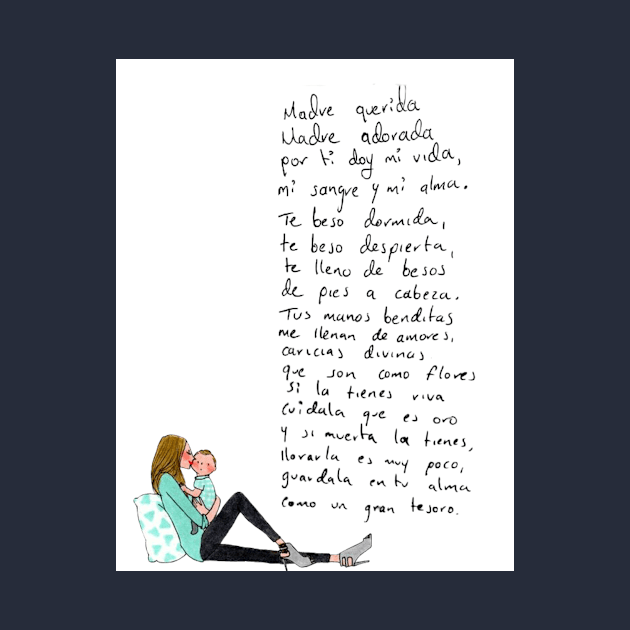 Madre querida
Madre adorada
por ti doy mi vida,
mi sangre y mi alma.
Te beso dormida,
te beso despierta,
te lleno de besos
de pies a cabeza.
Tus manos benditas
me llenan de amores,
caricias divinas
que son como flores
si la tienes viva
cuidala que es oro
Y si muerta la tienes,
llorarla es muy poco,
guardala en tu alma
como un gran tesoro.